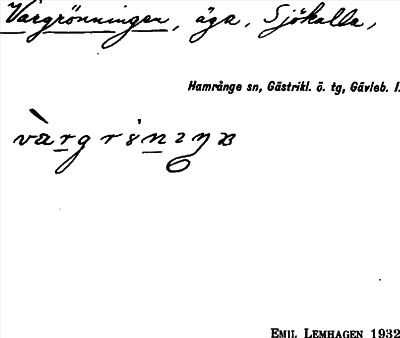 Vargrönningen, äga, Sjökalla,
Hamrånge sn, Gästrikl. ö. tg, Gävleb. l.
EMIL LEMHAGEN 1932